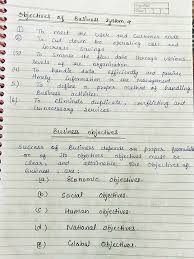 Objectives of Business System :
(1) To meet the user and customer needs
(2) To cut down the operating cost and increase savings
(3) To smooth the flow data through various levels of the organisation.
(4) To handle data efficiently and provide timely information to the management
(5) To define a proper method of handling Business activities.
(6) To eliminate duplicate, conflicting and unnecessary Services.
Business Objectives
Success of Business depends on proper formulation
of its Objectives. Objectives must be
clear and attainable. The Objectives of
Business all
(a) Economic Objectives
(b) Social Objectives.
(c) Human Objectives
(d) National Objectives
(e) Global Objectives.